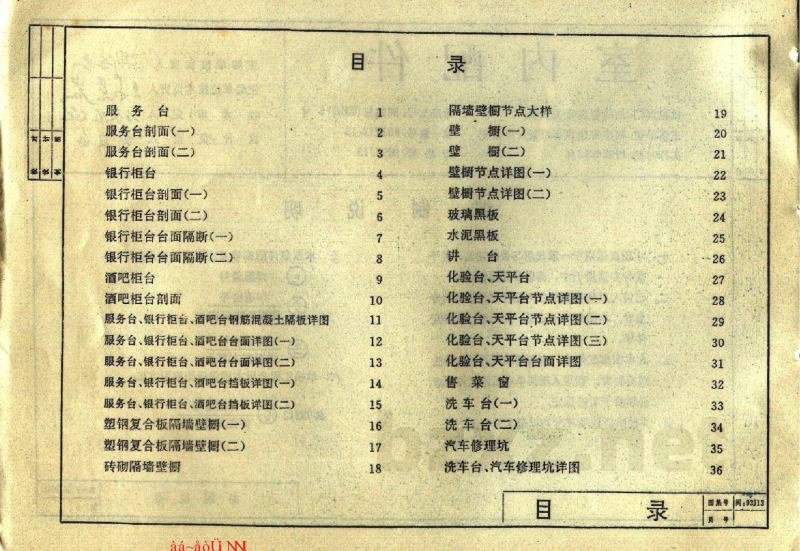 目 录
服 务 台 1
服务台剖面(一) 2
服务台剖面(二) 3
银行柜台 4
银行柜台剖面(一) 5
银行柜台剖面(二) 6
银行柜台台面隔断(一) 7
银行柜台台面隔断(二) 8
酒吧柜台 9
酒吧柜台剖面 10
服务台、银行柜台、酒吧台钢筋混凝土隔板详图 11
服务台、银行柜台、酒吧台台面详图(一) 12
服务台、银行柜台、酒吧台台面详图(二) 13
服务台、银行柜台、酒吧台挡板详图(一) 14
服务台、银行柜台、酒吧台挡板详图(二) 15
塑钢复合板隔墙壁橱(一) 16
塑钢复合板隔墙壁橱(二) 17
砖砌隔墙壁橱 18
隔墙壁橱节点大样 19
壁 橱(一) 20
壁 橱(二) 21
壁橱节点详图(一) 22
壁橱节点详图(二) 23
玻璃黑板 24
水泥黑板 25
讲 台 26
化验台、天平台 27
化验台、天平台节点详图(一) 28
化验台、天平台节点详图(二) 29
化验台、天平台节点详图(三) 30
化验台、天平台台面详图 31
售 菜 窗 32
洗 车 台(一) 33
洗 车 台(二) 34
汽车修理坑 35
洗车台、汽车修理坑详图 36
目 录
图集号 闽:92J13
页 号
àá~åòÜ